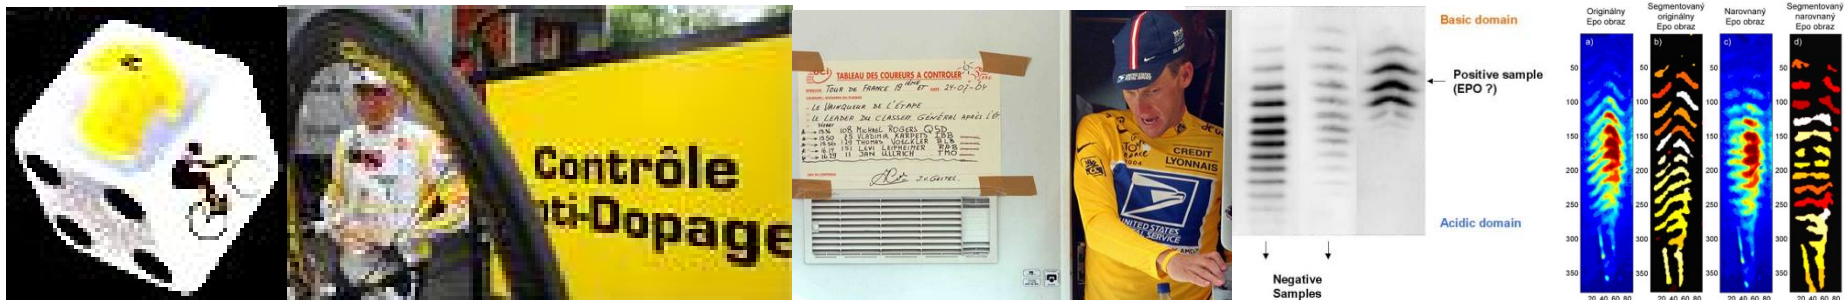 Contrôle
nti-Dopage
uci TABLEAU DES COUREURS A CONTROLER
TOUR DE FRANCE 19 ET 24-07-04
- LE VAINQUEUR DE L'ÉTAPE
- LE LEADER DU CLASSEM GÉNÉRAL APRÈS L'ÉT
108 MICHAEL ROGERS QSD
25 VLADIMIR KARPETS IBB
129 THOMAS VOECKLER BLB
151 LEVI LEIPHEIMER RAB
11 JAN ULLRICH TMO
CREDIT
LYONNAIS
TOUR
FRANCE
2004
UNITED STATES
POSTAL SERVICE
Basic domain
Positive sample
(EPO ?)
Acidic domain
Negative
Samples
Originálny
Epo obraz
Segmentovaný
originálny
Epo obraz
Narovnaný
Epo obraz
Segmentovaný
narovnaný
Epo obraz
a)
b)
c)
d)
50 50 50 50
100 100 100 100
150 150 150 150
200 200 200 200
250 250 250 250
300 300 300 300
350 350 350 350
20 40 60 80 20 40 60 80 20 40 60 80 20 40 60 80